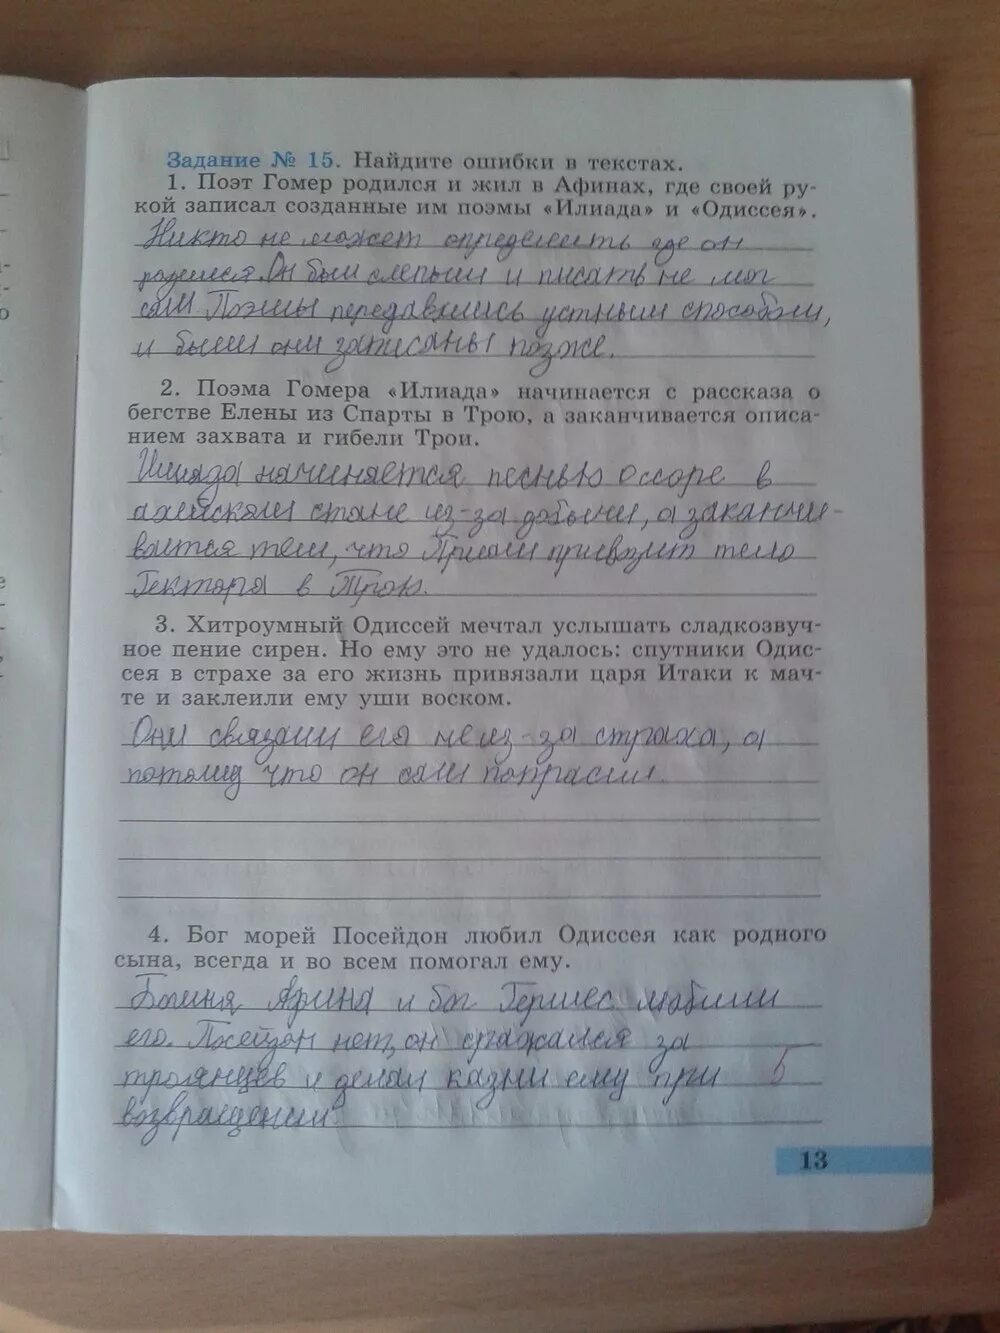 Задание № 15. Найдите ошибки в текстах.
1. Поэт Гомер родился и жил в Афинах, где своей ру-
кой записал созданные им поэмы «Илиада» и «Одиссея».
Никто не может определить где он
родился. Он был слепым и писать не мог
сам Поэмы передавались устным способом,
и были они записаны позже.
2. Поэма Гомера «Илиада» начинается с рассказа о
бегстве Елены из Спарты в Трою, а заканчивается описа-
нием захвата и гибели Трои.
Илиада начинается песнью о ссоре в
ахейском стане из-за добычи, а заканчи-
вается тем, что Приам привозит тело
Гектора в Трою.
3. Хитроумный Одиссей мечтал услышать сладкозвуч-
ное пение сирен. Но ему это не удалось: спутники Одис-
сея в страхе за его жизнь привязали царя Итаки к мач-
те и заклеили ему уши воском.
Они связали его не из-за страха, а
потому что он сам попрасил.
4. Бог морей Посейдон любил Одиссея как родного
сына, всегда и во всем помогал ему.
Богиня Афина и бог Гермес любили
его. Посейдон нет, он сражался за
троянцев и делал казни ему при 5
возвращении.
13